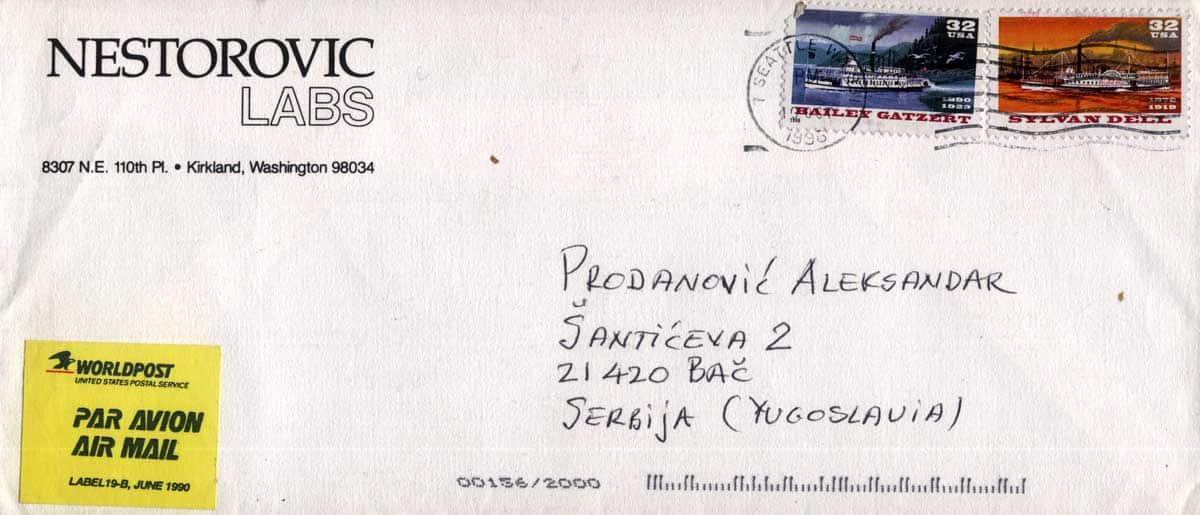 NESTOROVIC
LABS
8307 N.E. 110th Pl. • Kirkland, Washington 98034
SEATTLE
1996
32
USA
1890
1923
BAILEY GATZERT
32
USA
1872
1919
SYLVAN DELL
PRODANOVIĆ ALEKSANDAR
ŠANTIĆEVA 2
21420 BAČ
SERBIJA (YUGOSLAVIA)
WORLDPOST
UNITED STATES POSTAL SERVICE
PAR AVION
AIR MAIL
LABEL 19-B, JUNE 1990
00156/2000